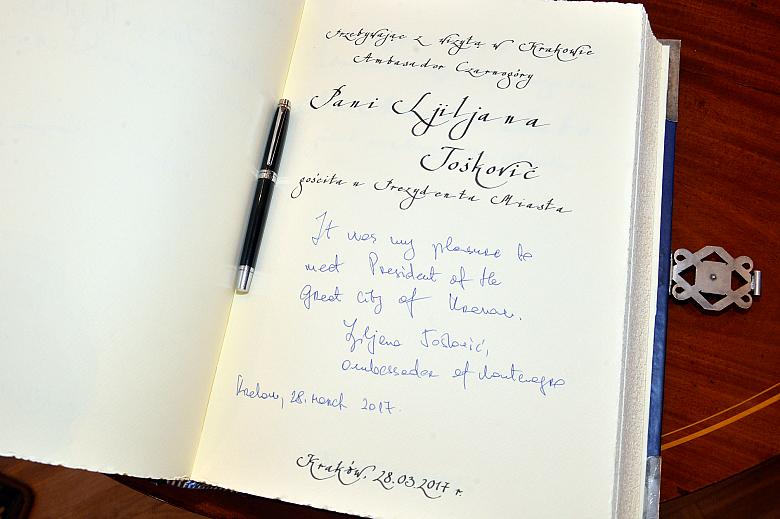 Przebywając z wizytą w Krakowie
Ambasador Czarnogóry
Pani Ljiljana
Tošković
gościła u Prezydenta Miasta
It was my pleasure to
meet President of the
Great city of Krakow.
Ljiljana Tošković,
ambassador of Montenegro
Krakow, 28. march 2017.
Kraków, 28.03.2017 r.